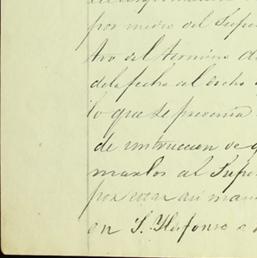 por medio del Supe
tro del termino d
de la fecha al dicho
lo que se previene
de instruccion de q
marlos al Supe
por ser asi man
en S. Yldefonso a